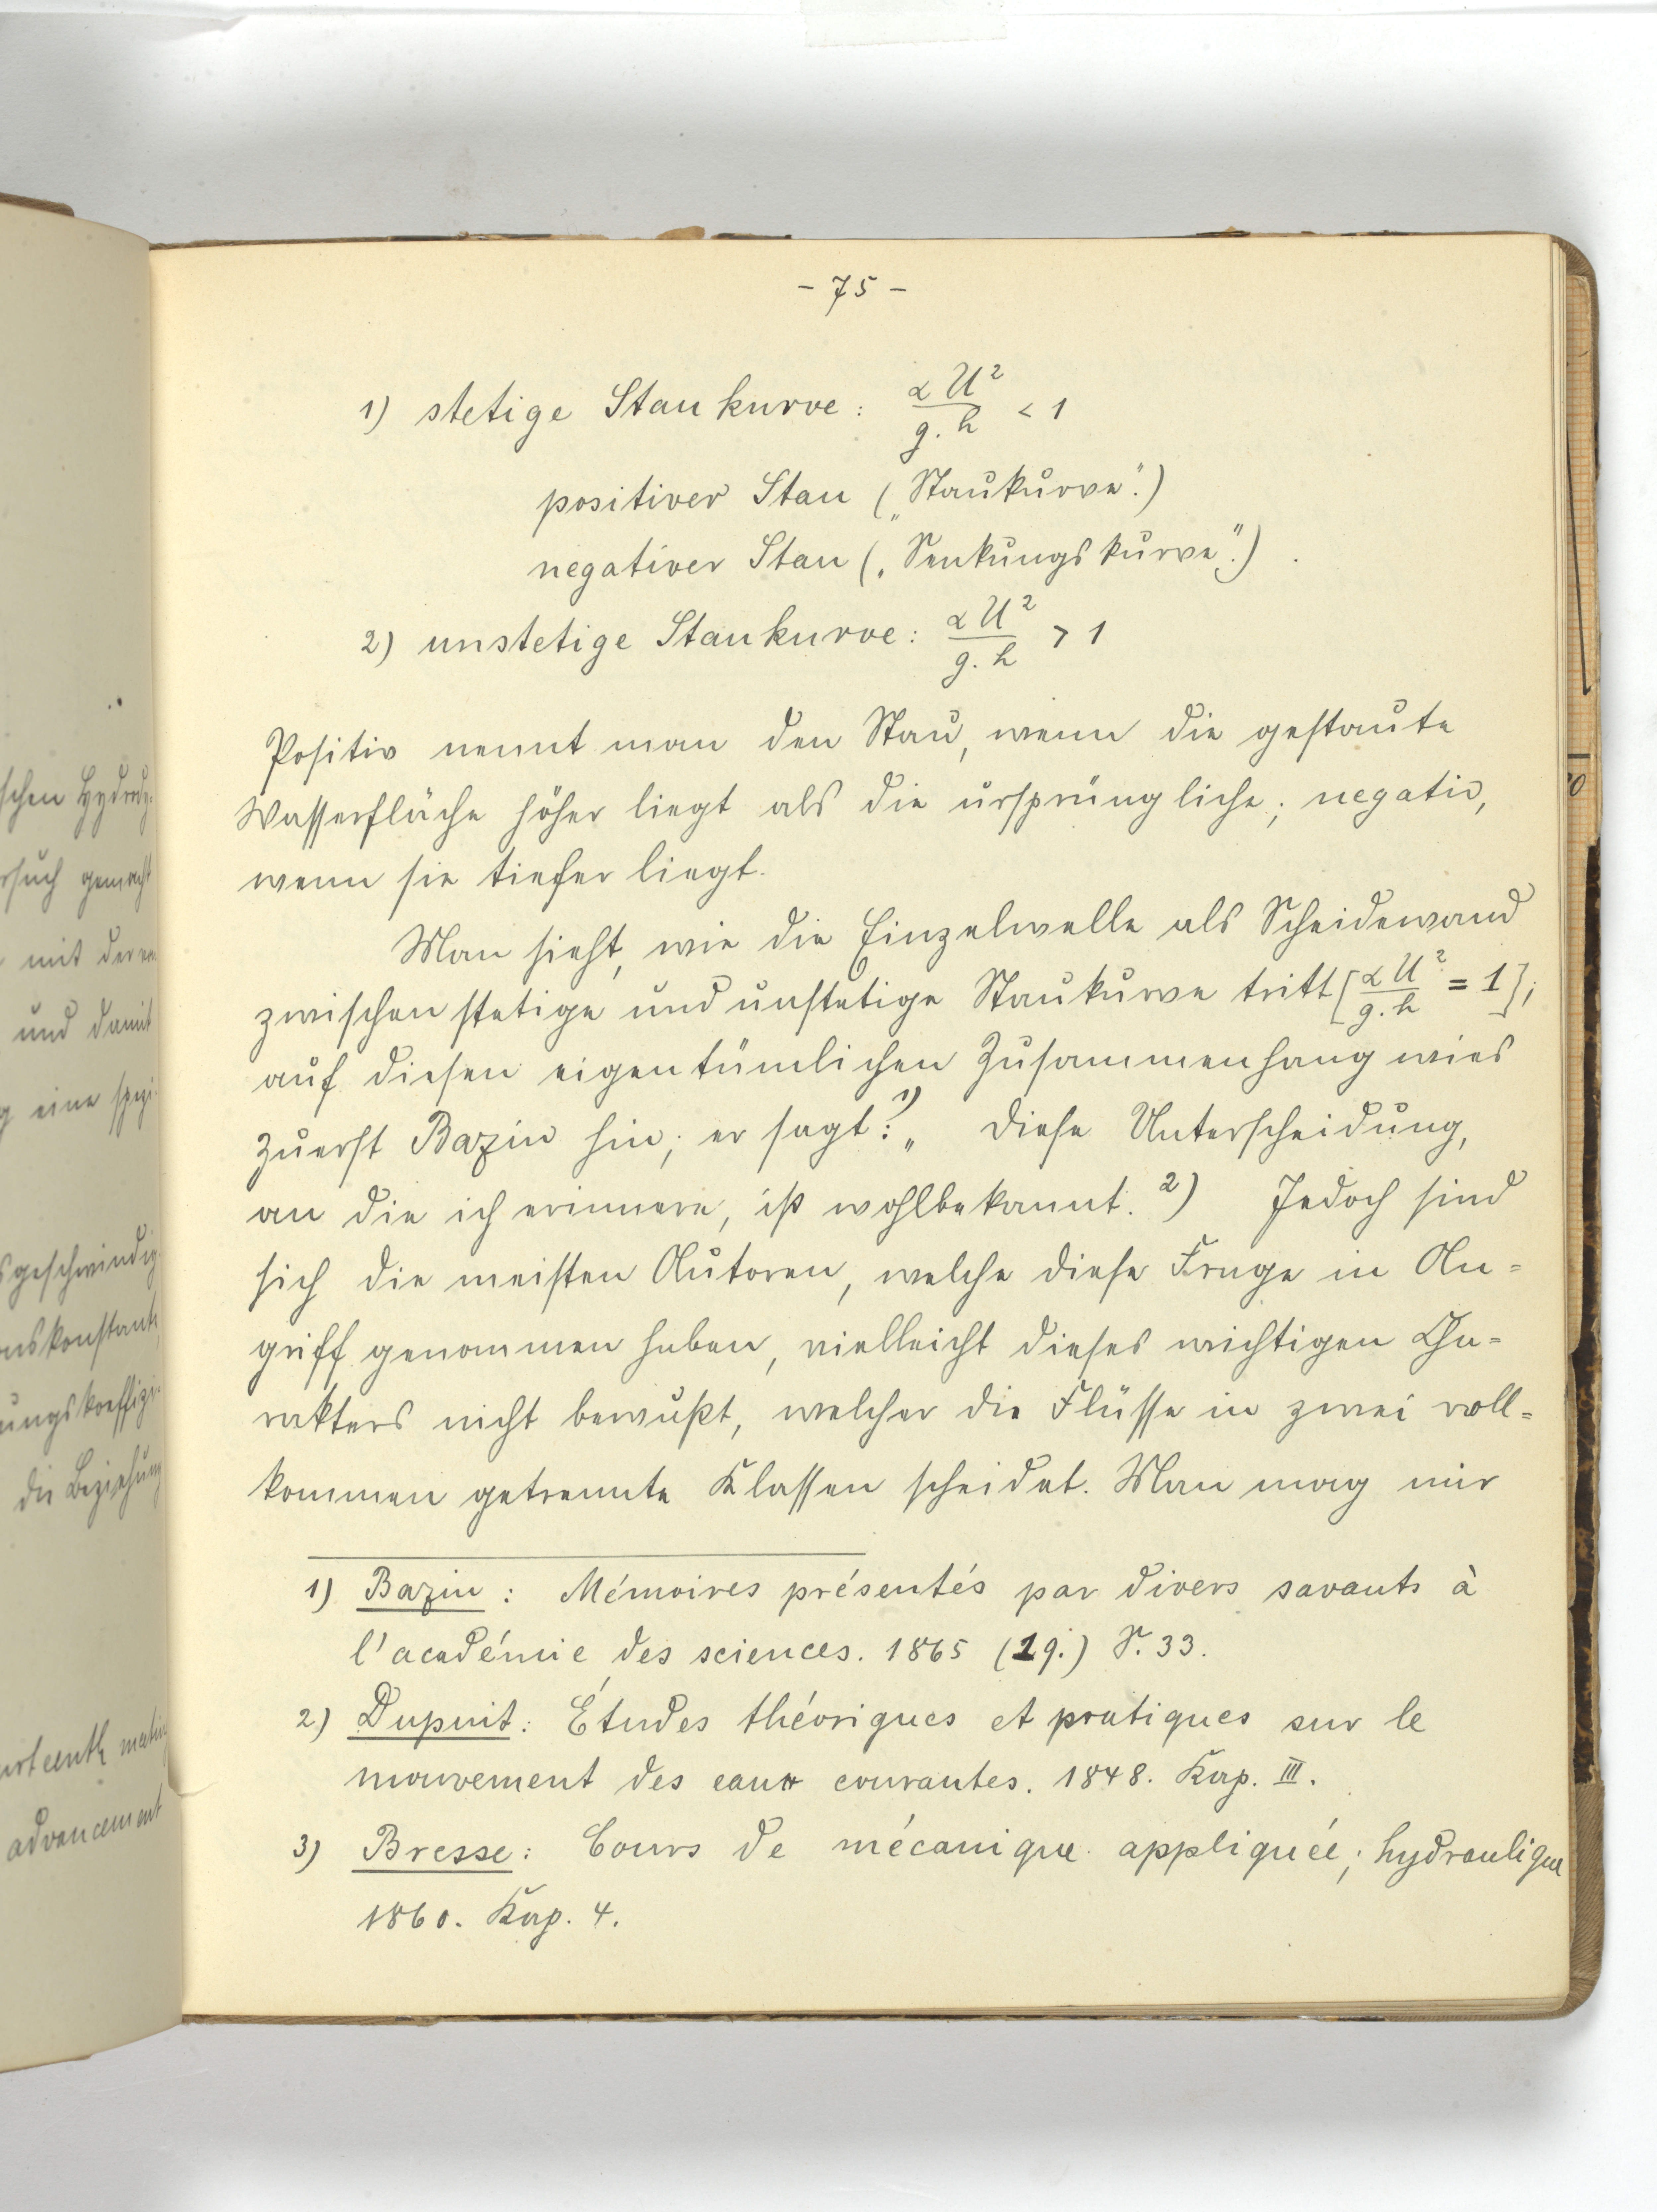 - 75 -
1) stetige Staukurve: α U² / g. h < 1
positiver Stau („Staukurve".)
negativer Stau („Senkungskurve".)
2) unstetige Staukurve: α U² / g. h > 1
Positiv nennt man den Stau, wenn die gestaute
Wasserfläche höher liegt als die ursprüngliche; negativ,
wenn sie tiefer liegt.
Man sieht, wie die Einzelwelle als Scheidewand
zwischen stetige und unstetige Staukurve tritt [α U² / g. h = 1];
auf diesen eigentümlichen Zusammenhang wies
zuerst Bazin hin; er sagt:¹⁾ „Diese Unterscheidung,
an die ich erinnere, ist wohlbekannt. ²) Jedoch sind
sich die meisten Autoren, welche diese Frage in An=
griff genommen haben, vielleicht dieses wichtigen Cha=
rakters nicht bewußt, welcher die Flüsse in zwei voll=
kommen getrennte Klassen scheidet. Man mag mir
1) Bazin: Mémoires présentés par divers savants à
l'académie des sciences. 1865 (19.) S. 33.
2) Dupuit: Études théoriques et pratiques sur le
mouvement des eaux courantes. 1848. Kap. III.
3) Bresse: Cours de mécanique appliquée; hydraulique
1860. Kap. 4.
schen Hydrody=
rsuch gemacht
mit deren
und damit
eine spezi-
sgeschwindig
nskonstante
ungskoeffizi-
die Beziehung
urteenth meeting
advancement